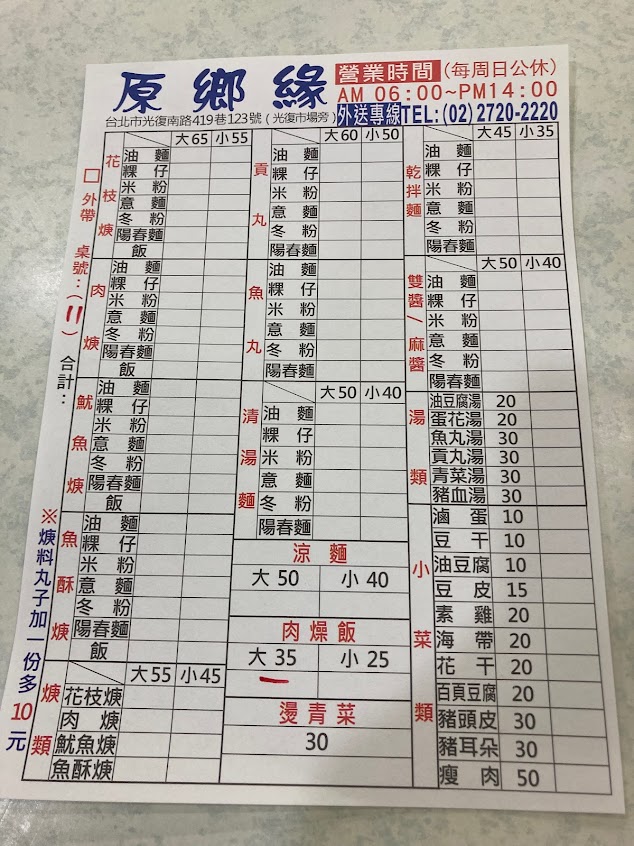 原鄉緣
營業時間(每周日公休)
AM 06:00~PM14:00
台北市光復南路419巷123號(光復市場旁)
外送專線TEL:(02)2720-2220
□外帶 桌號:(11) 合計:
※焿料丸子加一份多10元
大65 小55
花枝焿
油麵
粿仔
米粉
意麵
冬粉
陽春麵
飯
肉焿
油麵
粿仔
米粉
意麵
冬粉
陽春麵
飯
魷魚焿
油麵
粿仔
米粉
意麵
冬粉
陽春麵
飯
魚酥焿
油麵
粿仔
米粉
意麵
冬粉
陽春麵
飯
焿類
大55 小45
花枝焿
肉焿
魷魚焿
魚酥焿
大60 小50
貢丸
油麵
粿仔
米粉
意麵
冬粉
陽春麵
魚丸
油麵
粿仔
米粉
意麵
冬粉
陽春麵
大50 小40
清湯麵
油麵
粿仔
米粉
意麵
冬粉
陽春麵
涼麵
大50 小40
肉燥飯
大35 小25
燙青菜
30
大45 小35
乾拌麵
油麵
粿仔
米粉
意麵
冬粉
陽春麵
大50 小40
雙醬/麻醬
油麵
粿仔
米粉
意麵
冬粉
陽春麵
湯類
油豆腐湯 20
蛋花湯 20
魚丸湯 30
貢丸湯 30
青菜湯 30
豬血湯 30
小菜類
滷蛋 10
豆干 10
油豆腐 10
豆皮 15
素雞 20
海帶 20
花干 20
百頁豆腐 20
豬頭皮 30
豬耳朵 30
瘦肉 50